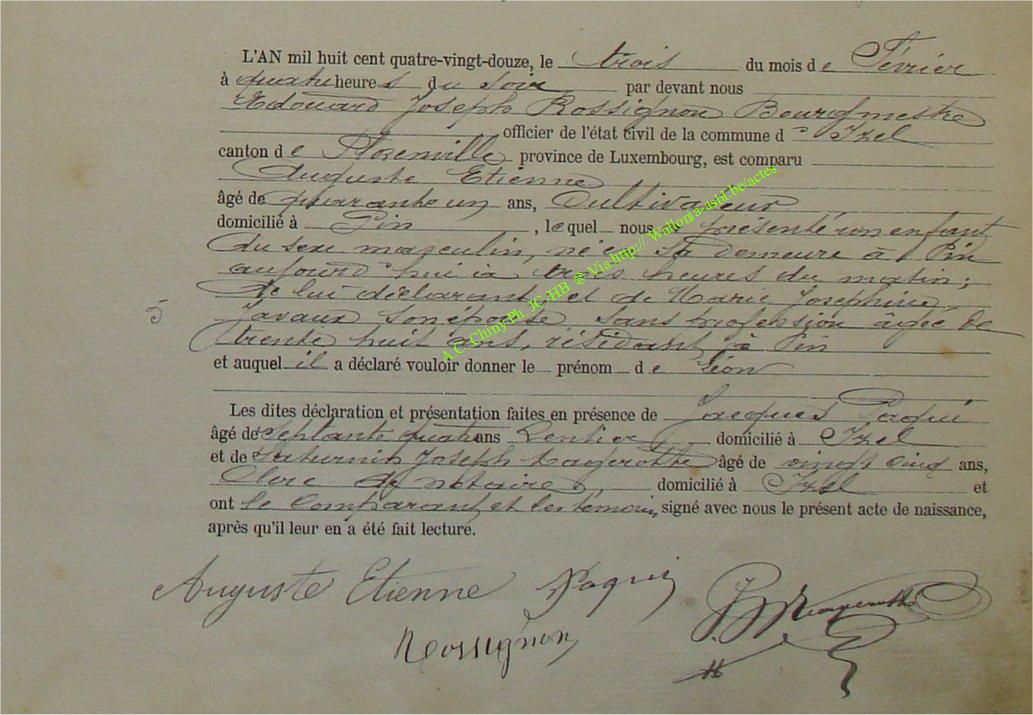 L'AN mil huit cent quatre-vingt-douze, le trois du mois de Février
à quatre heures du soir par devant nous
Edouard Joseph Rossignon Bourgmestre
officier de l'état civil de la commune d' Izel
canton de Florenville province de Luxembourg, est comparu
Auguste Etienne
âgé de quarante un ans, Cultivateur
domicilié à Pin , lequel nous a présenté un enfant
du sexe masculin, né en sa demeure à Pin
aujourd'hui à trois heures du matin;
de lui déclarant et de Marie Joséphine
5 Javaux son épouse, sans profession âgée de
trente huit ans, résidant à Pin
et auquel il a déclaré vouloir donner le prénom de Léon
Les dites déclaration et présentation faites en présence de Jacques Paqui
âgé de Septante quatre ans Rentier, domicilié à Izel
et de Saturnin Joseph âgé de vingt cinq ans,
Clerc de notaire, domicilié à Izel et
ont le comparant et les témoins signé avec nous le présent acte de naissance,
après qu'il leur en a été fait lecture.
Auguste Etienne Paqui
Rossignon
A.C. Chiny Ph. JC HB @ Via http:// Wallonia-asbl.be/actes